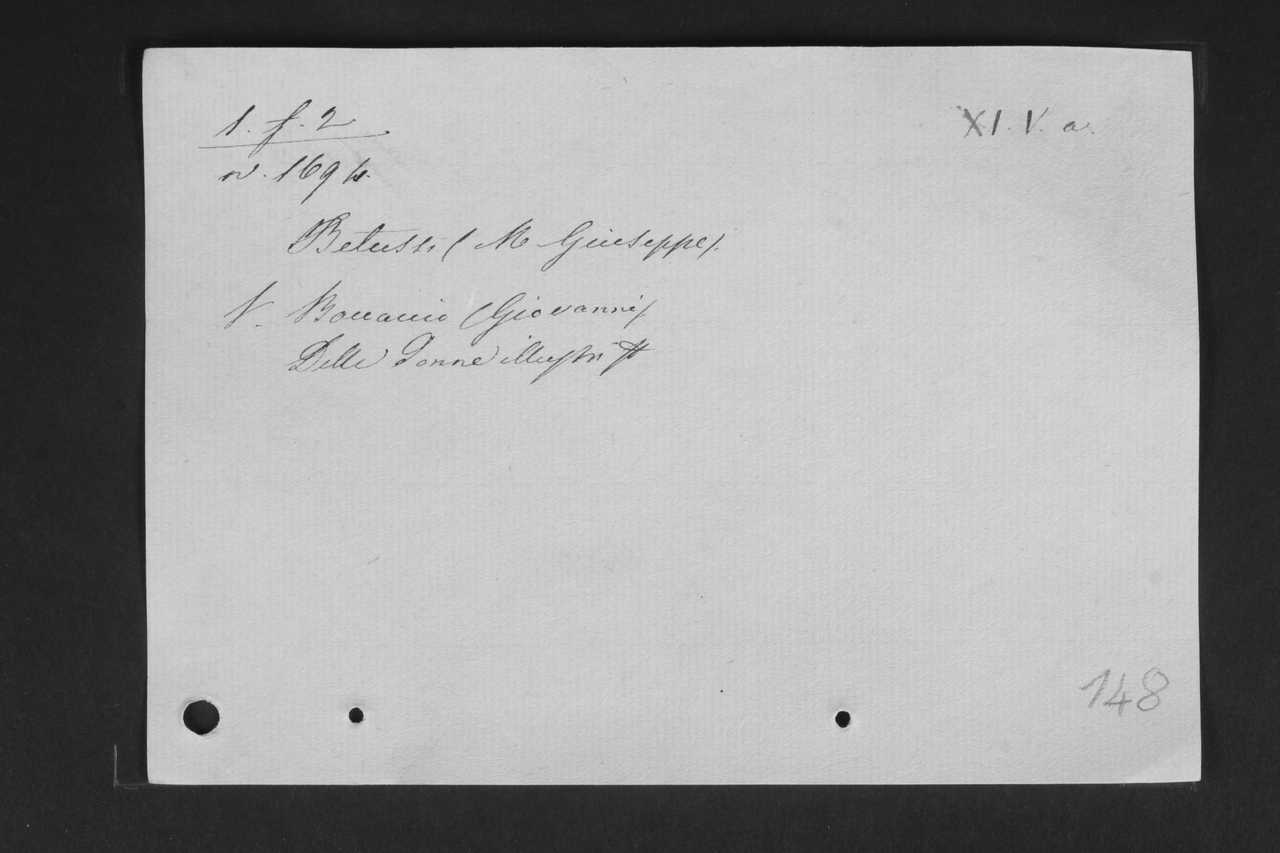 1. f. 2
XI. V. a.
n. 169
Betussi (M Giuseppe).
V. Boccaccio (Giovanni).
Delle donne illustri
148